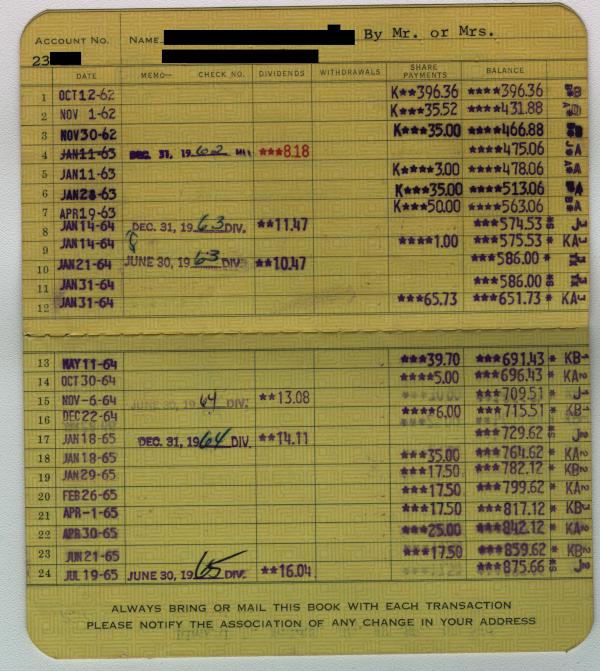 ACCOUNT NO. NAME By Mr. or Mrs.
23
DATE MEMO— CHECK NO. DIVIDENDS WITHDRAWALS SHARE PAYMENTS BALANCE
1 OCT 12-62 K**396.36 ****396.36
2 NOV 1-62 K***35.52 ****431.88
3 NOV 30-62 K***35.00 ****466.88
4 JAN 11-63 DEC. 31, 1962 ***8.18 ****475.06 A
5 JAN 11-63 K****3.00 ****478.06 A
6 JAN 28-63 K***35.00 ****513.06 A
7 APR 19-63 K***50.00 ****563.06 A
8 JAN 14-64 DEC. 31, 1963 DIV. **11.47 ***574.53 *
9 JAN 14-64 ****1.00 ***575.53 * KA
10 JAN 21-64 JUNE 30, 1963 DIV. **10.47 ***586.00 *
11 JAN 31-64 ***586.00 *
12 JAN 31-64 ***65.73 ***651.73 * KA
13 MAY 11-64 ***39.70 ***691.43 * KB
14 OCT 30-64 ****5.00 ***696.43 * KA
15 NOV-6-64 JUNE 30, 1964 DIV. **13.08 ***709.51 * J
16 DEC 22-64 ****6.00 ***715.51 * KB
17 JAN 18-65 DEC. 31, 1964 DIV. **14.11 ***729.62 * J
18 JAN 18-65 ***35.00 ***764.62 * KA
19 JAN 29-65 ***17.50 ***782.12 * KB
20 FEB 26-65 ***17.50 ***799.62 * KA
21 APR-1-65 ***17.50 ***817.12 * KB
22 APR 30-65 ***25.00 ***842.12 * KA
23 JUN 21-65 ***17.50 ***859.62 * KB
24 JUL 19-65 JUNE 30, 1965 DIV. **16.04 ***875.66 * J
ALWAYS BRING OR MAIL THIS BOOK WITH EACH TRANSACTION
PLEASE NOTIFY THE ASSOCIATION OF ANY CHANGE IN YOUR ADDRESS